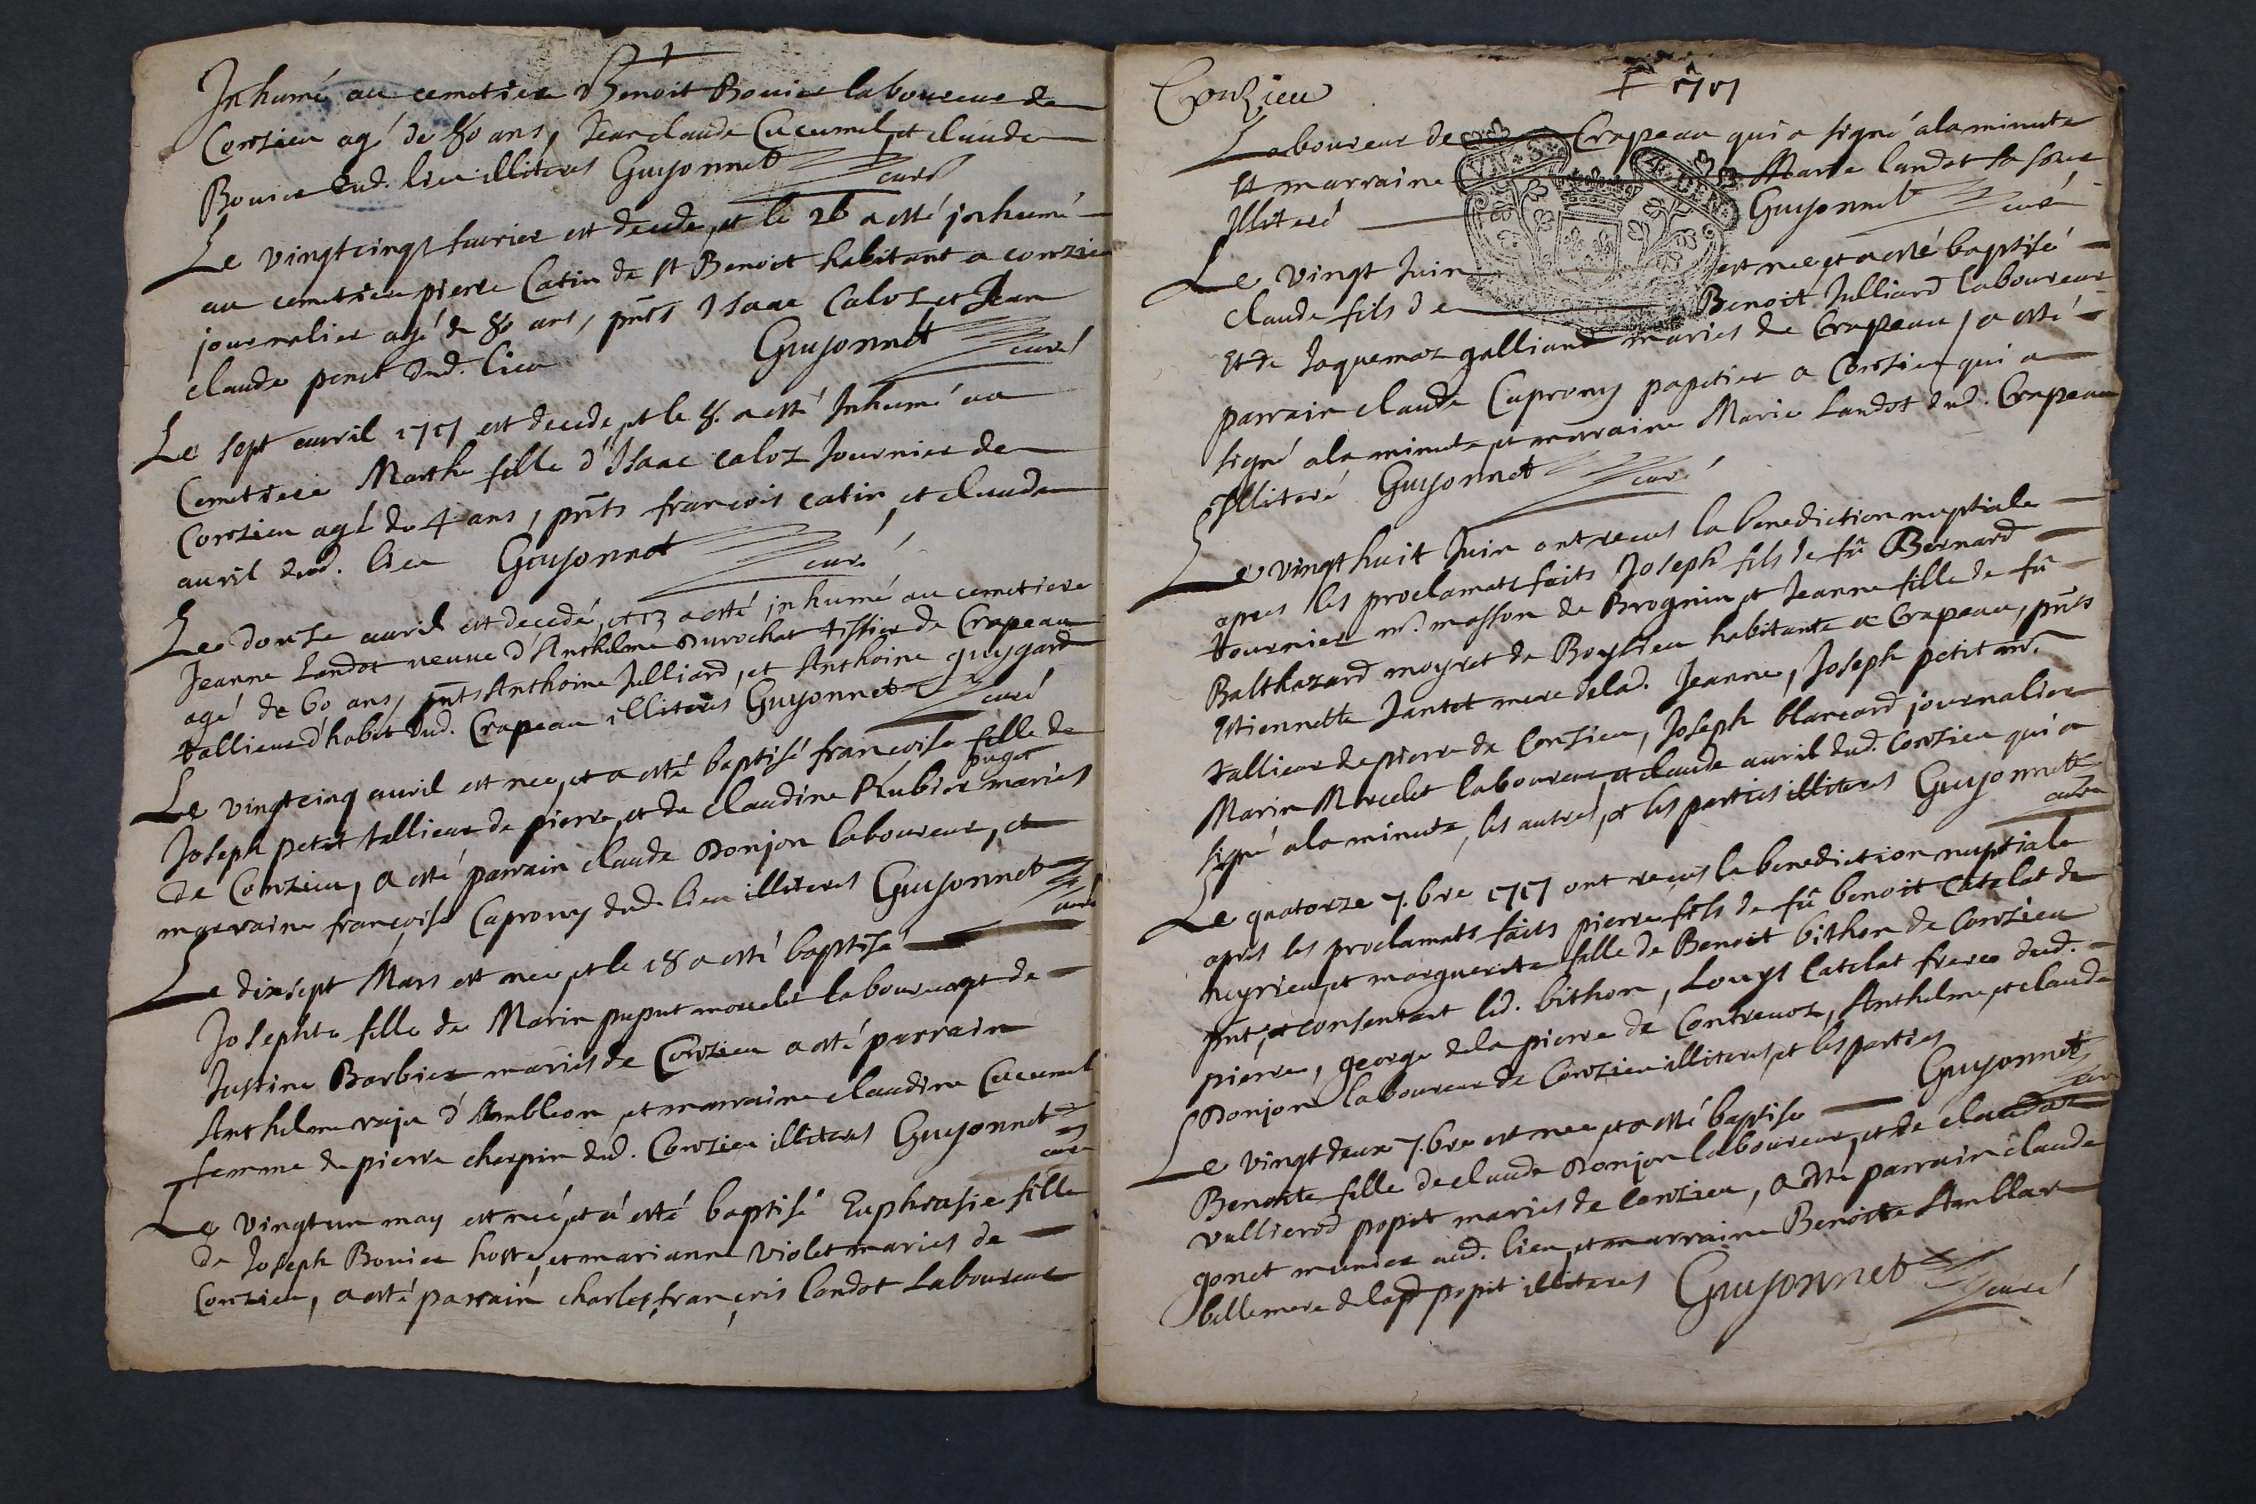 Inhumé au cemetiere Benoit Bouier laboureur de
Conzieu agé de 80 ans, Jean claude Cucumel, et claude
Bouier dud. lieu illiteres Guyonnet curé
Le vingtcinq feurier est decede, et le 26 a esté jnhumé
au cemetiere pierre Catin de st Benoit habitant a conzieu
journalier agé de 80 ans, pnts Isaac Caloz et Jean
claude penet dud. lieu Guyonnet curé
Le sept auril 1717 est decede, et le 8. a esté Inhumé au
Cemetiere Marthe fille d'Isaac caloz Journier de
Conzieu agé de 4 ans, pnts françois catin, et claude
auril dud. lieu Guyonnet curé
Le douse auril est decedé, et 13 a esté jnhumé au cemetiere
Jeanne Landot veuue d'Anthelme Durochat tissier de Crapeau
agé de 60 ans, pnts Anthoine Julliard, et Anthoine guygard
tallieur d'habit dud. Crapeau illiteres Guyonnet curé
Le vingtcinq auril est nee, et a esté baptisé francoise fille de
puget
Joseph petit tallieur de pierre, et de claudine Rubier mariés
de Conzieu, a esté parrain claude Donjon laboureur, et
marraine francoise Caprony dud. lieu illiteres Guyonnet curé
Le dixsept Mars est nee, et le 18 a esté baptisé
Josephte fille de Marin puput mourelet laboureur, et de
Justine Barbier mariés de Conzieu a esté parrain
Anthelme d'Ambleon, et marraine claudine Cucumel
femme de pierre cherpin dud. Conzieu illiteres Guyonnet curé
Le vingtun may est neé, et á esté baptisé Euphrasie fille
de Joseph Bouier hoste, et marianne Violet mariés de
Conzieu, a esté parrain charles françois Landot Laboureur
Conzieu 1717
Laboureur de Crapeau qui a signé a la minute
Et marraine Marie landot sa sœur
Illiteré Guyonnet curé
Le Vingt Juin est nee, et a esté baptisé
claude fils de Benoit Julliard laboureur
Et de Jaquemaz galliand mariés de Crapeau, a esté
parrain claude Caprony papetier a Conzieu qui a
signé a la minute, et marraine Marie Landot dud. Crapeau
Illiteré Guyonnet curé
Le vingthuit Juin ont recus la benediction nuptiale
apres les proclamats faits Joseph fils de fû Bernard
tournier mr. masson de Brognin, et Jeanne fille de fû
Balthazard moyret de Boylieu habitante a Crapeau, pnts
Estiennette Jantet mere de lad. Jeanne, Joseph petit mr.
tallieur de pierre de Conzieu, Joseph blancard journalier
Marin Morcelet laboureur, et claude auril dud. Conzieu qui a
signé a la minute, les autres, et les parties illiteres Guyonnet curé
Le quatorze 7.bre 1717 ont recus la benediction nuptiale
apres les proclamats faits pierre fils de fû benoit Catelat de
neyrieu, et marguerite fille de Benoit bithon de Conzieu
pnt, et consentant led. bithon, Louys Catelat frere dud.
pierre, george dela pierre de Contreuoz, Anthelme, et claude
Donjon laboureur de Conzieu illiteres, et les parties Guyonnet curé
Le vingtdeux 7.bre est nee, et a esté baptise
Benoite fille de claude Donjon laboureur, et de claudaz
vullierod popit mariés de conzieu, a esté parrain claude
gonet munier aud. lieu, et marraine Benoite Amblar
bellemere de lad popit illiteres Guyonnet curé